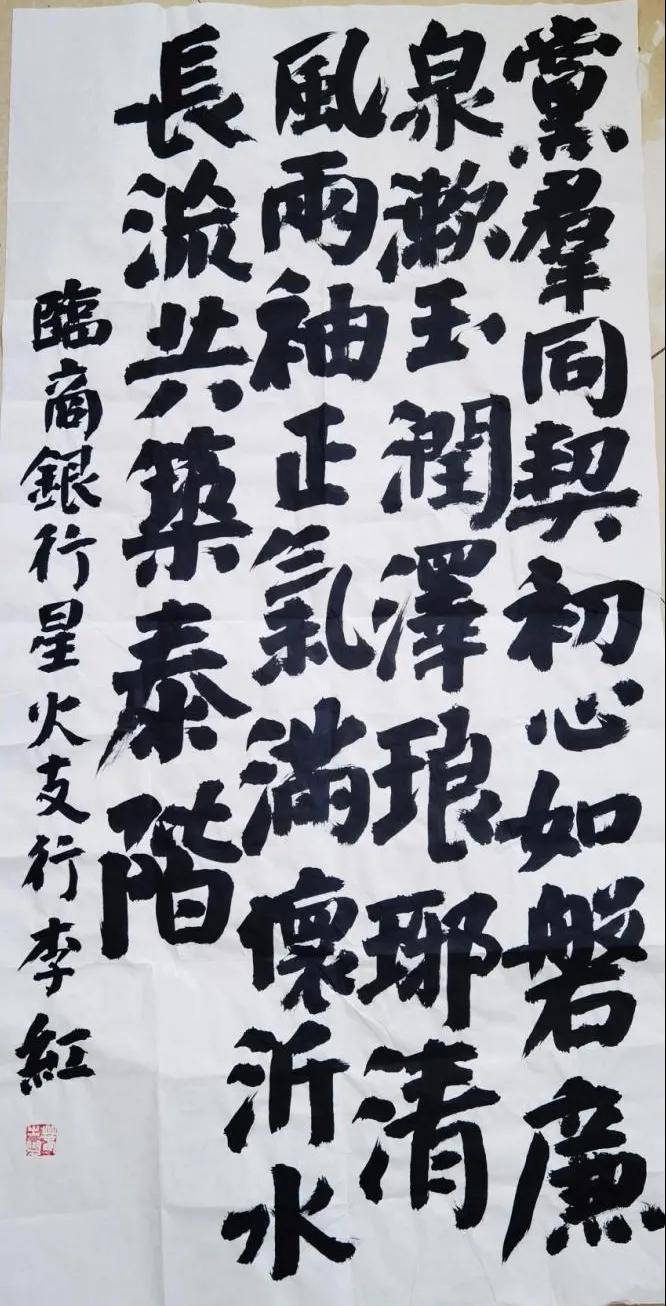 黨羣同契初心如磐廉
泉漱玉潤澤琅琊清
風兩袖正氣滿懷沂水
長流共築泰階
臨商銀行星火支行李紅